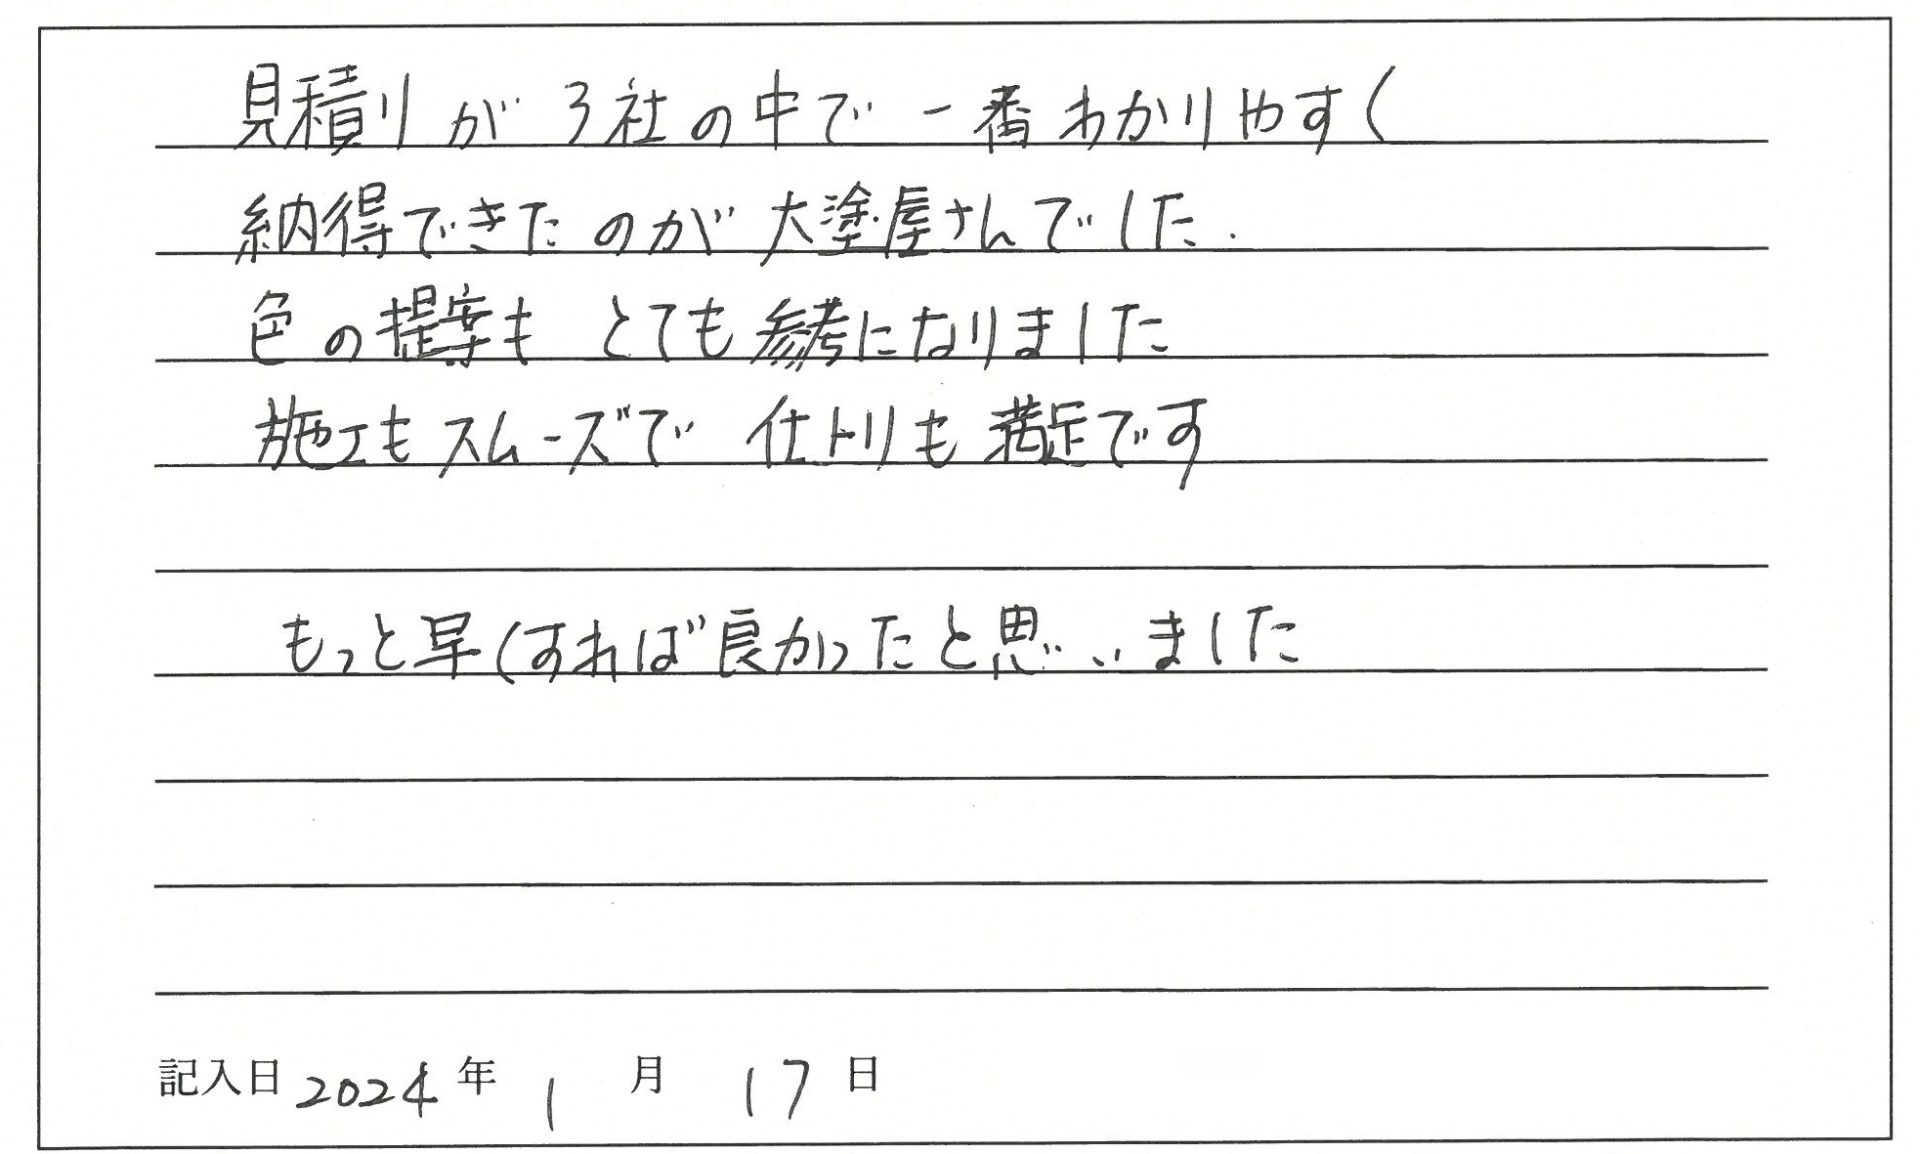 見積りが3社の中で一番わかりやすく
納得できたのが大塗屋さんでした.
色の提案もとても参考になりました
施工もスムーズで仕上りも満足です
もっと早くすれば良かったと思いました
記入日 2024年 1月 17日